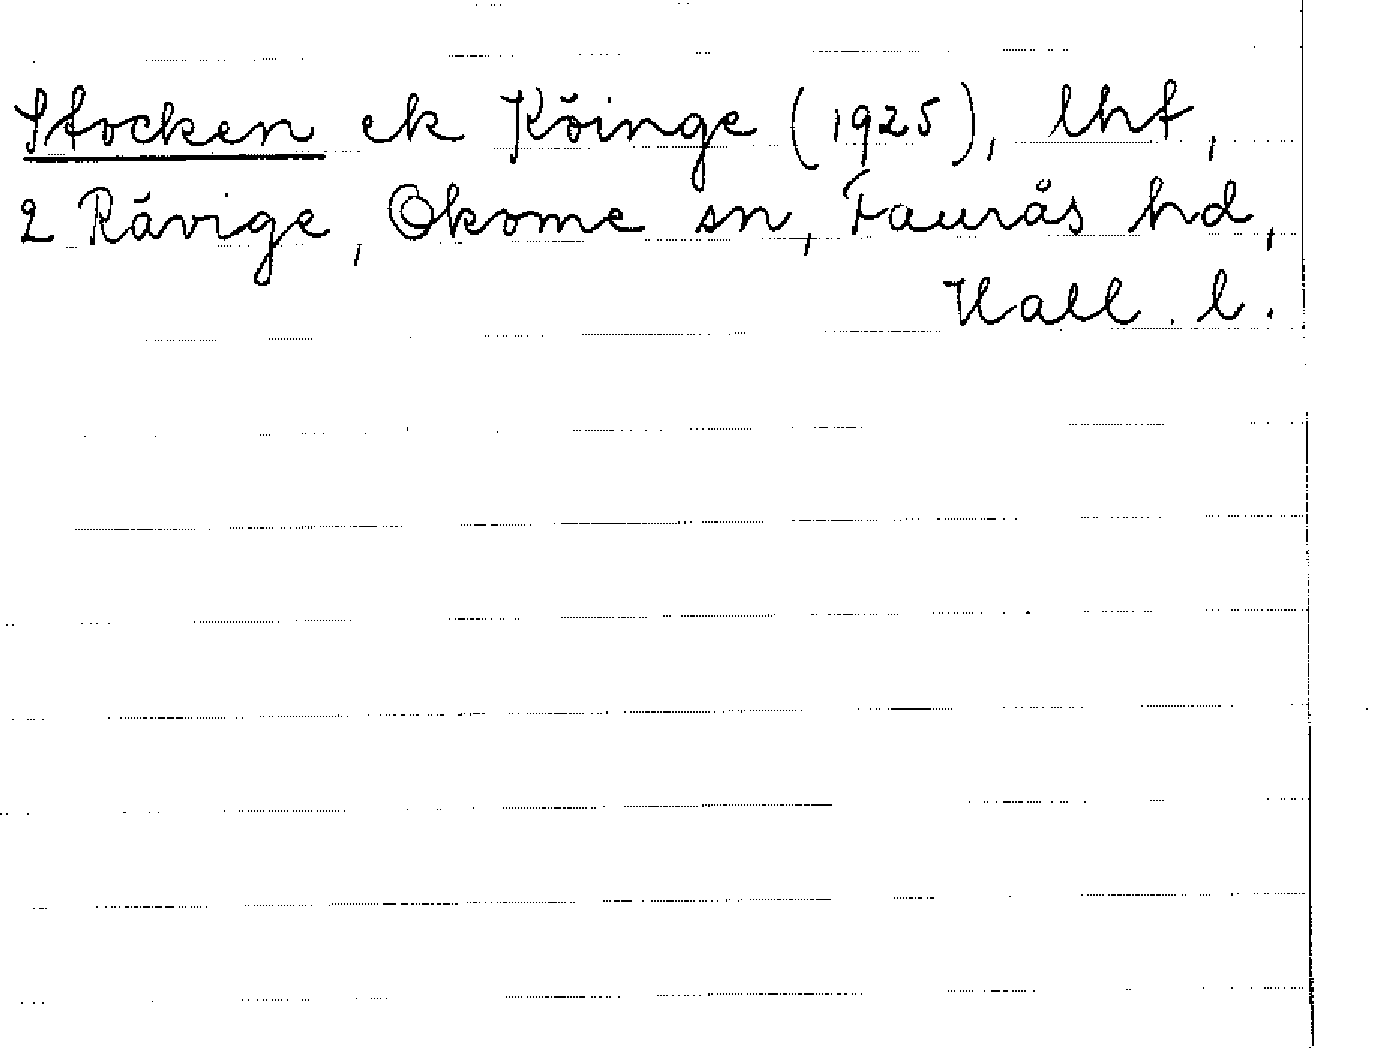 Stocken ek Köinge (1925), lht,
2 Rävige, Okome sn, Faurås hd,
Hall. l.